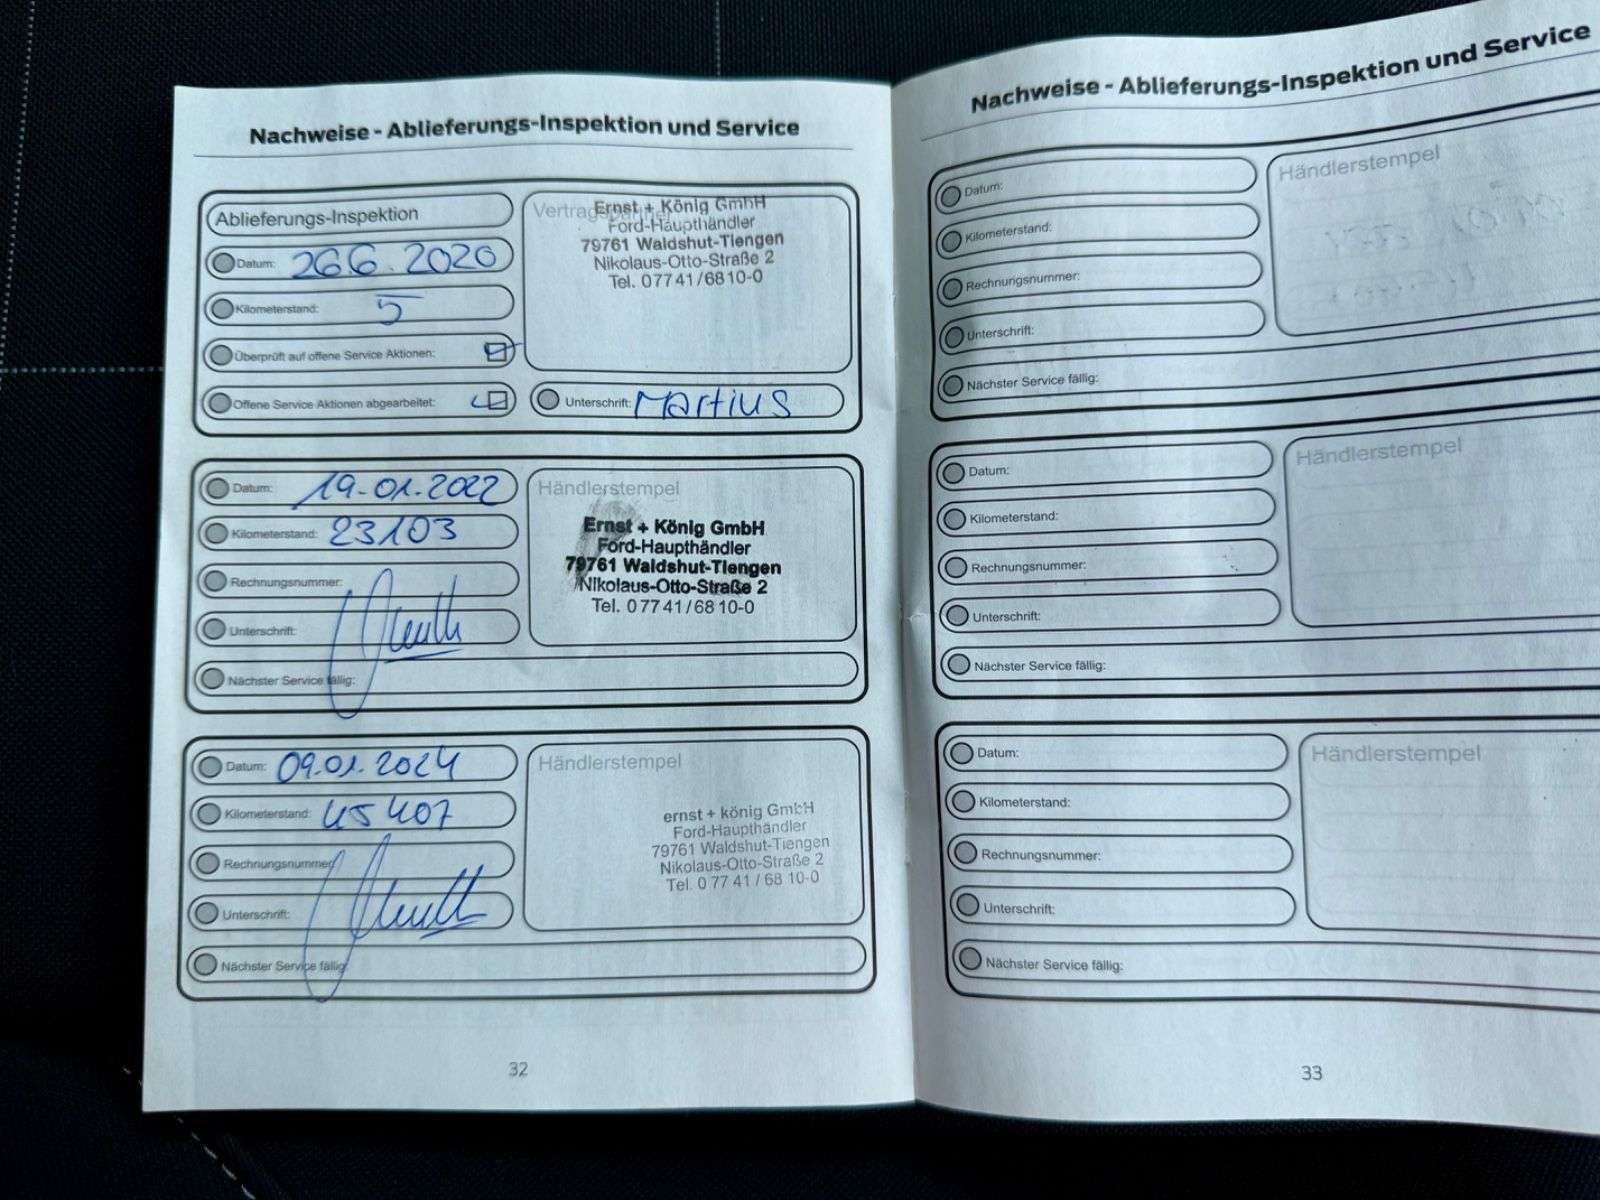 Nachweise - Ablieferungs-Inspektion und Service
Ablieferungs-Inspektion
Datum: 26 6. 2020
Kilometerstand: 5
Überprüft auf offene Service Aktionen:
Offene Service Aktionen abgearbeitet:
Vertragspartner
Ernst + König GmbH
Ford-Haupthändler
79761 Waldshut-Tiengen
Nikolaus-Otto-Straße 2
Tel. 0 77 41 / 68 10-0
Unterschrift: Martius
Datum: 19.01.2022
Kilometerstand: 23103
Rechnungsnummer:
Unterschrift:
Nächster Service fällig:
Händlerstempel
Ernst + König GmbH
Ford-Haupthändler
79761 Waldshut-Tiengen
Nikolaus-Otto-Straße 2
Tel. 0 77 41 / 68 10-0
Datum: 09.01.2024
Kilometerstand: 45 407
Rechnungsnummer
Unterschrift:
Nächster Service fällig:
Händlerstempel
ernst + könig GmbH
Ford-Haupthändler
79761 Waldshut-Tiengen
Nikolaus-Otto-Straße 2
Tel. 0 77 41 / 68 10-0
32
Nachweise - Ablieferungs-Inspektion und Service
Datum:
Kilometerstand:
Rechnungsnummer:
Unterschrift:
Nächster Service fällig:
Händlerstempel
Datum:
Kilometerstand:
Rechnungsnummer:
Unterschrift:
Nächster Service fällig:
Händlerstempel
Datum:
Kilometerstand:
Rechnungsnummer:
Unterschrift:
Nächster Service fällig:
Händlerstempel
33